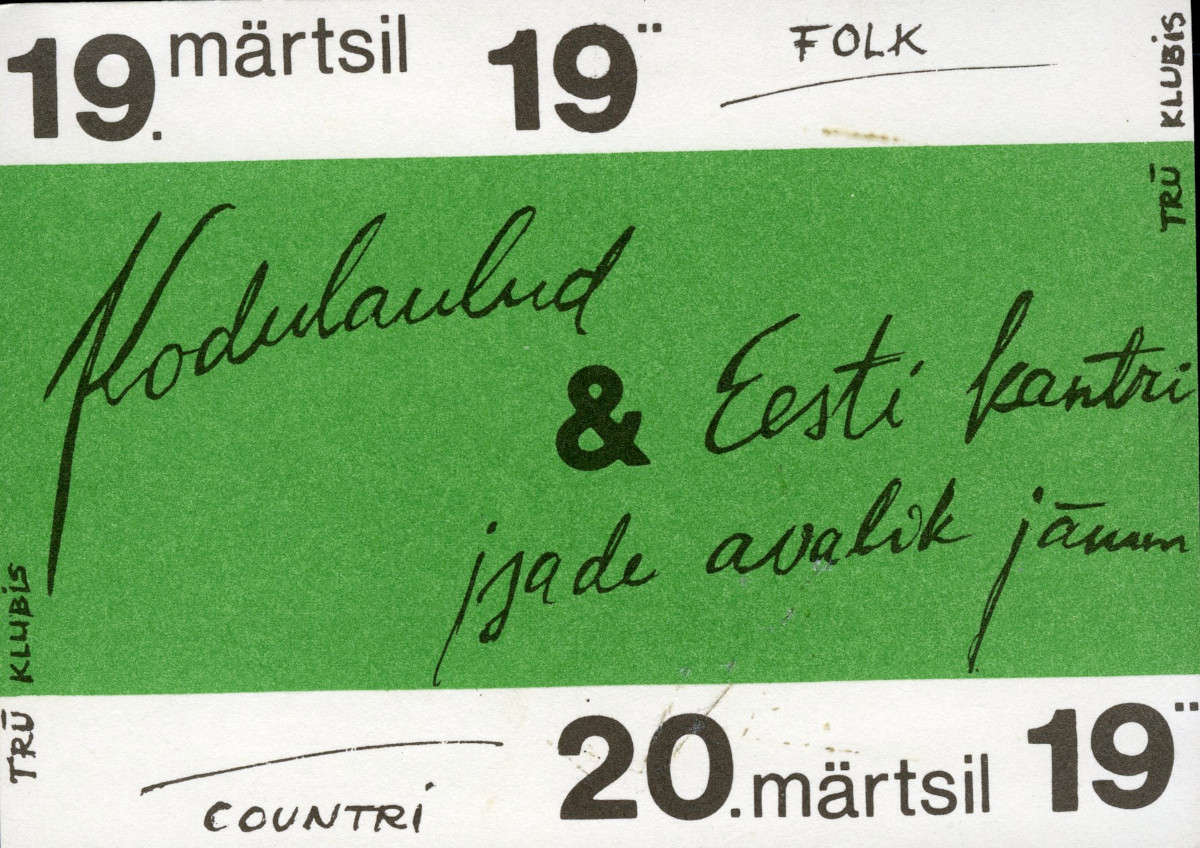 19. märtsil 19¨ FOLK
TRÜ KLUBIS
Kodulaulud
& Eesti kantri
isade avalik jämm
TRÜ KLUBIS
COUNTRI 20. märtsil 19¨